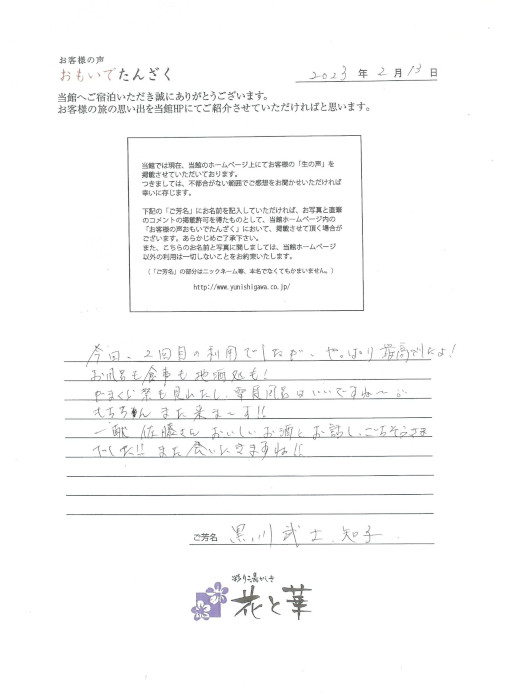 お客様の声
おもいでたんざく
2023 年 2 月 13 日
当館へご宿泊いただき誠にありがとうございます。
お客様の旅の思い出を当館HPにてご紹介させていただければと思います。
当館では現在、当館のホームページ上にてお客様の「生の声」を
掲載させていただいております。
つきましては、不都合がない範囲でご感想をお聞かせいただければ
幸いに存じます。
下記の「ご芳名」にお名前を記入していただければ、お写真と直筆
のコメントの掲載許可を得たものとして、当館ホームページ内の
「お客様の声おもいでたんざく」において、掲載させて頂く場合が
ございます。あらかじめご了承下さい。
また、こちらのお名前と写真に関しましては、当館ホームページ
以外の利用は一切しないことをお約束いたします。
（「ご芳名」の部分はニックネーム等、本名でなくてもかまいません。）
http://www.yunishigawa.co.jp/
今回、2回目の利用でしたが、やっぱり最高でしたよ!
お風呂も食事も地酒処も!
かまくら祭も見れたし、露天風呂はいいですね〜
もちろん また来ま〜す!!
佐藤さん おいしいお酒とお話し、ごちそうさま
でした!! また会いにきますね!!
ご芳名 黒川武士、知子
彩り湯かしき
花と華